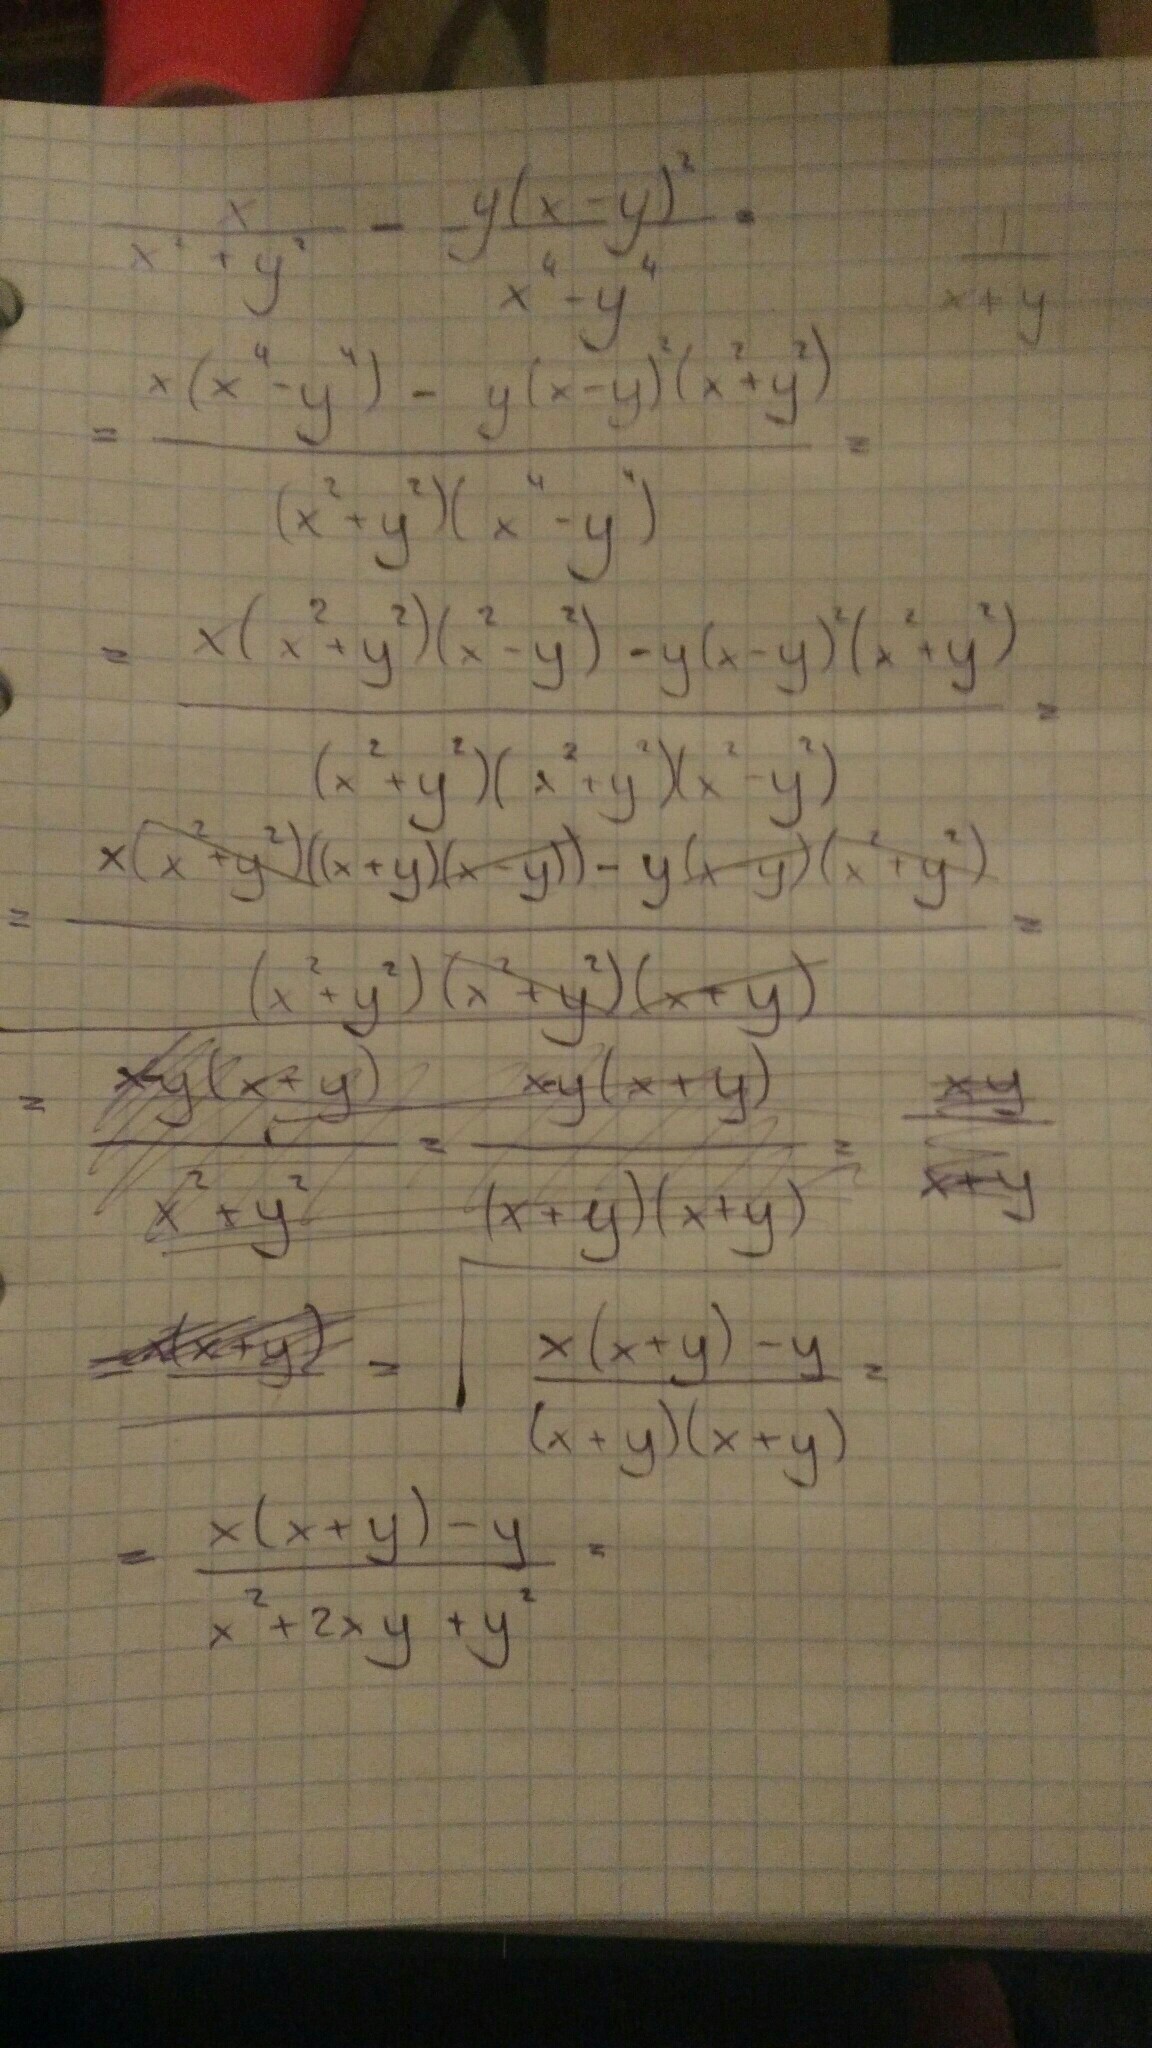 x/(x²+y²) - y(x-y)²/(x⁴-y⁴) = 1/(x+y)
= (x(x⁴-y⁴) - y(x-y)²(x²+y²))/((x²+y²)(x⁴-y⁴)) =
= (x(x²+y²)(x²-y²) - y(x-y)²(x²+y²))/((x²+y²)(x²+y²)(x²-y²)) =
= (x(x²+y²)((x+y)(x-y)) - y(x-y)(x²+y²))/((x²+y²)(x²+y²)(x+y)) =
= (x-y(x+y))/(x²+y²) = (x-y(x+y))/((x+y)(x+y)) = (x-y)/(x+y)
= x(x+y) = (x(x+y)-y)/((x+y)(x+y)) =
= (x(x+y)-y)/(x²+2xy+y²) =